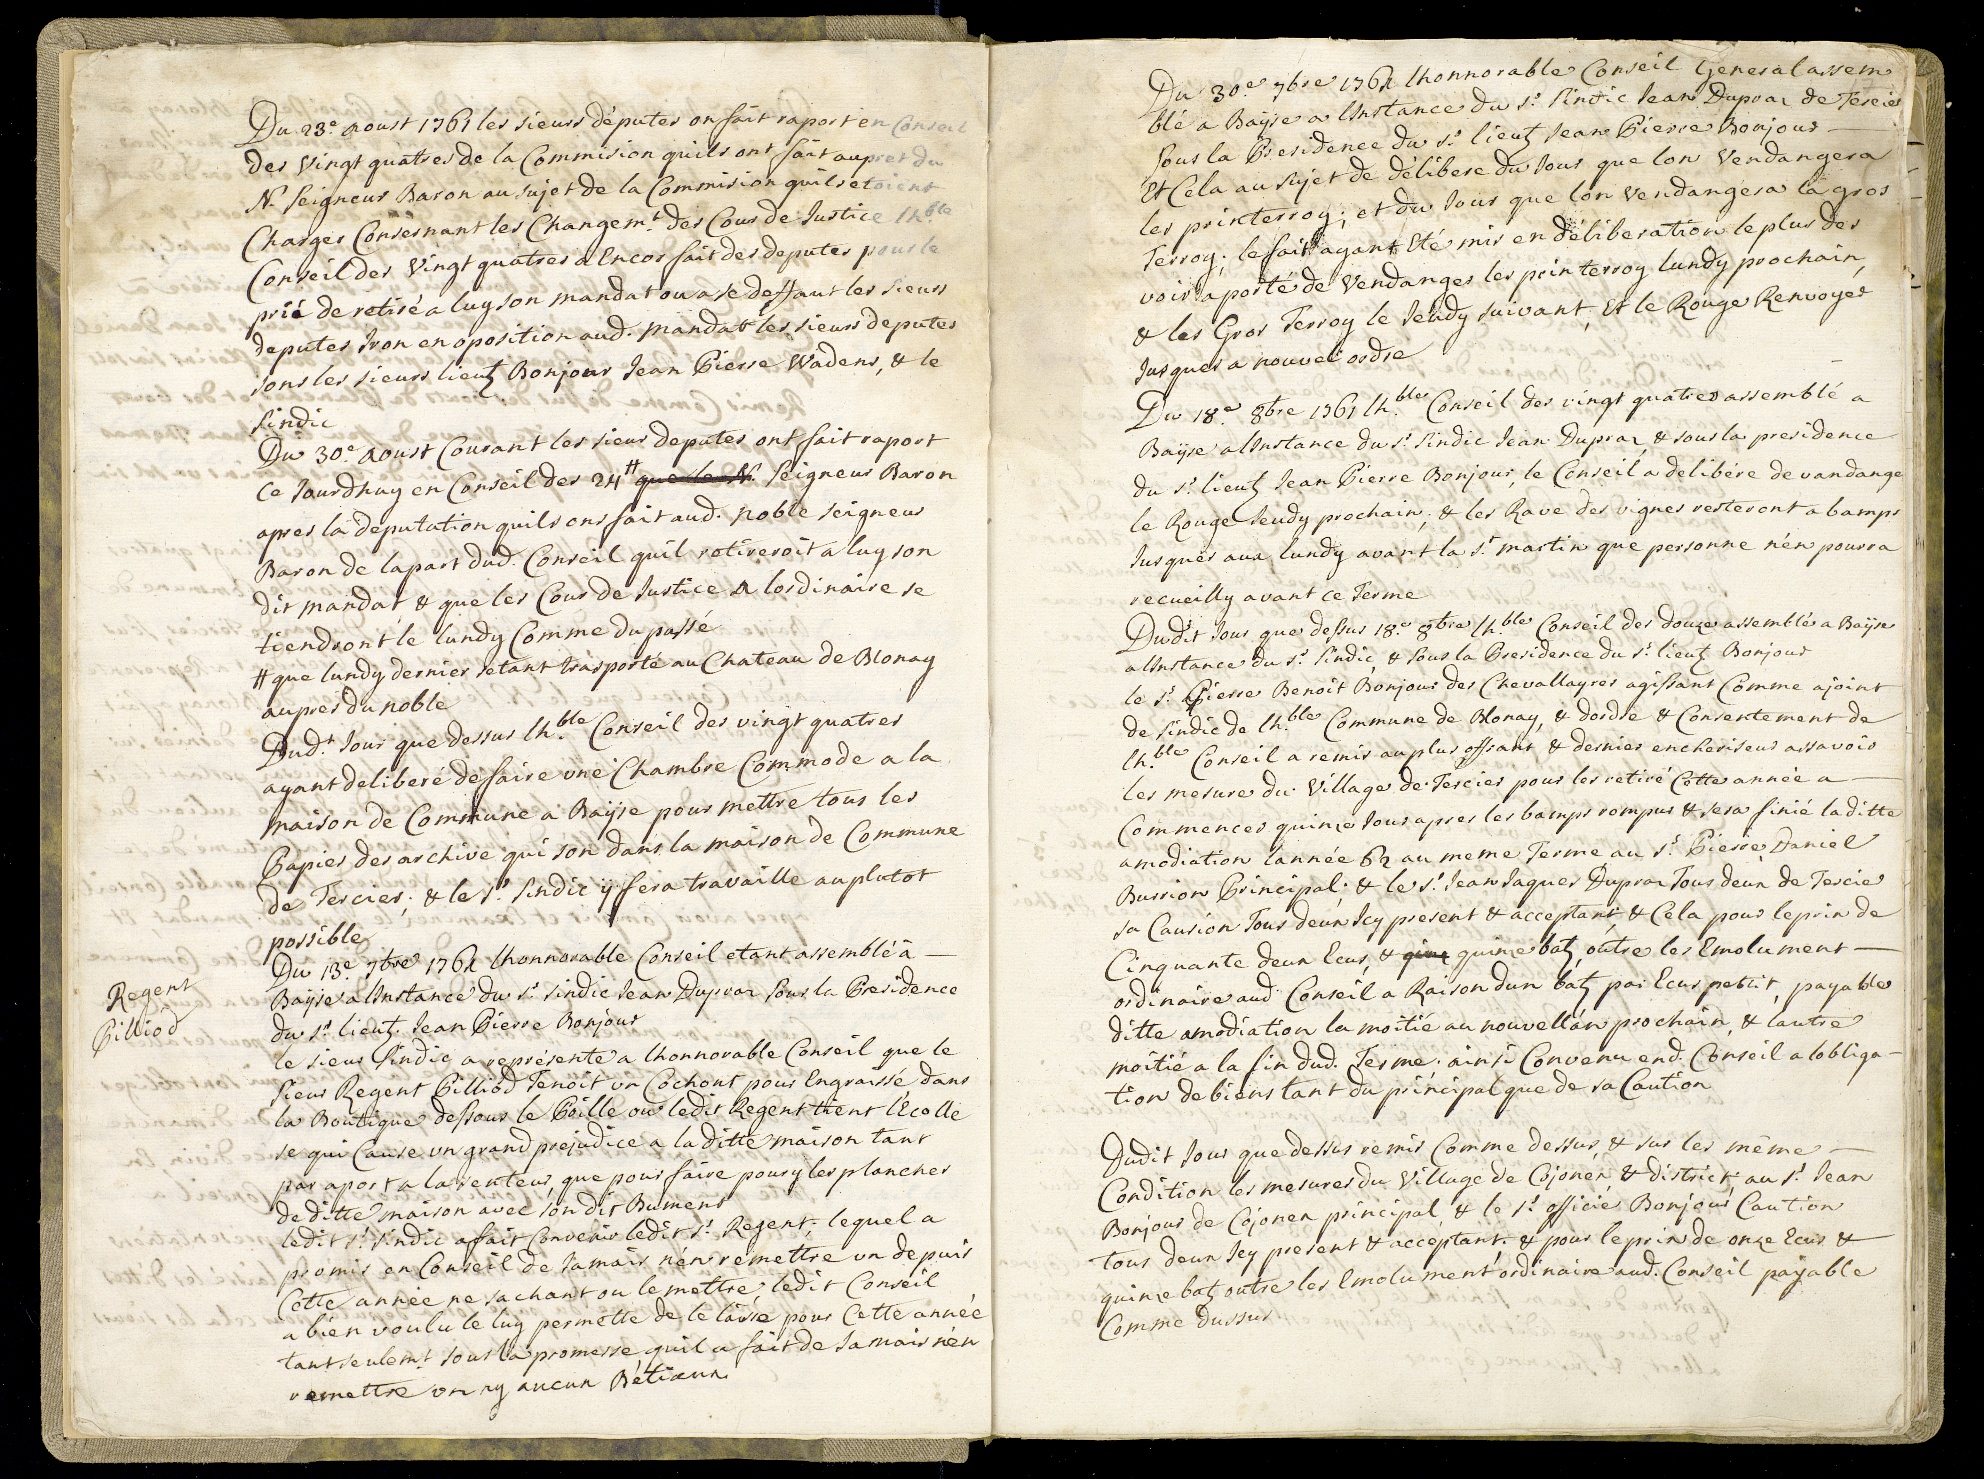 Du 23.e Aoust 1761 les sieurs députes on fait raport en Conseil
des Vingt quatres de la Commision quils ont fait aupret du
N. Seigneur Baron au sujet de la Commision quils etoient
Charges Consernant les Changemt. des Cour de Justice lh.ble
Conseil des Vingt quatres a Encor fait des deputes pour le
prié de retiré a luy son mandat ou a se deffaut les sieurs
deputes Iron en oposition aud. mandat les sieurs deputes
sons les sieurs lieutz Bonjour Jean Pierre Wadens, & le
Sindic
Du 30.e Aoust Courant les sieur deputes ont fait raport
Ce Jourdhuy en Conseil des 24 # que le N. Seigneur Baron
apres la deputation quils ons fait aud. Noble seigneur
Baron de la part dud. Conseil quil retireroit a luy son
dit mandat & que les Cour de Justice A lordinaire se
tiendront le lundy Comme du passé
# que lundy dernier setant trasporté au Chateau de Blonay
aupres du noble
Dud.t Jour que dessus lh.ble Conseil des vingt quatres
ayant deliberé de faire vne Chambre Commode a la
maison de Commune a Baÿse pour mettre tous les
Papier des archive qui son dans la maison de Commune
de Tercier, & le sr. Sindic ÿ fera travaille au plutot
possible
Du 13e. 7bre 1761 lhonnorable Conseil etant assemblé à
Baÿse a lInstance du sr. sindic Jean Dupraz sous la Presidence
du sr. lieutz. Jean Pierre Bonjour
Regent
Pilliod
le sieur Sindic a représenté a lhonnorable Conseil que le
Sieur Regent Pilliod Tenoit vn Cochont pour Engraissé dans
la Boutique dessous le Poille ou ledit Regent tient l'Ecolle
se qui Cause vn grand prejudice a la ditte maison tant
par aport a la senteur, que pour faire poury les plancher
de ditte maison avec son dit Bument
ledit sr. sindic a fait Convenir ledit sr. Regent, lequel a
promis en Conseil de Jamais n'én remettre vn depuis
Cette année ne sachant ou le mettre, ledit Conseil
a bien voulu le luy permette de le laisse pour Cette année
tant seulemt. sous la promesse quil a fait de Jamais n'én
remettre vn ny aucun Bétiaux.
Du 30.e 7bre 1761 lhonnorable Conseil General assem
blé a Baÿse a lInstance du sr. Sindic Jean Dupraz de Tercier
Sous la Presidence du sr. lieutz Jean Pierre Bonjour
Et Cela au Sujet de délibere du Jour que lon Vendangera
les printerroy, et du Jour que lon vendangera la gros
Terroy, le fait ayant Eté mis en déliberation le plus des
voir a porté de Vendanges les printerroy lundy prochain,
& les Gros Terroy le Jeudy suivant, Et le Rouge Renvoyer
Jusques a nouvel ordre
Du 18.e 8bre 1761 lh.ble Conseil des vingt quatres assemblé a
Baÿse a lInstance du sr. Sindic Jean Dupraz & sous la presidence
du sr. lieutz Jean Pierre Bonjour, le Conseil a delibére de vandange
le Rouge Jeudy prochain, & les Rave des vignes resteront a bamps
Jusques aux lundy avant la St. martin que personne n'én pourra
recueilly avant ce Terme
Dudit Jour que dessus 18.e 8bre lh.ble Conseil des douze assemblé a Baÿse
a lInstance du sr. Sindic, & sous la Presidence du sr. lieutz Bonjour
le sr. Pierre Benoit Bonjour des Chevallayres agissant Comme ajoint
de Sindic de lh.ble Commune de Blonay, & dordre & Consentement de
lh.ble Conseil a remis au plus offrant & dernier encheriseur assavoir
les mesure du Village de Tercier pour les retiré Cette année a
Commencer quinze Jour apres les bamps rompus & sera finié la ditte
amodiation lannée 62 au meme Terme au sr. Pierre Daniel
Burrion Principal, & le sr. Jean Jaques Dupraz Tous deux de Tercier
sa Causion Tous deux Icy present & acceptant, & Cela pour le prix de
Cinquante deux Ecus, & quinz quinze batz, outre les Emolument
ordinaire aud Conseil a Raison dun batz par Ecus petit, payable
ditte amodiation la moitié au nouvellan prochain, & lautre
moitié a la fin dud. Terme, ainsi Convenu end. Conseil a lobliga-
tion de biens tant du principal que de sa Caution
Dudit Jour que dessus remis Comme dessus, & sur les même
Condition les mesures du Village de Cojonex & district au sr. Jean
Bonjour de Cojonex principal, & le sr. officié Bonjour Caution
tous deux Icy present & acceptant, & pour le prix de onze Ecus &
quinze batz outre les Emolument ordinaire aud. Conseil payable
Comme dussus